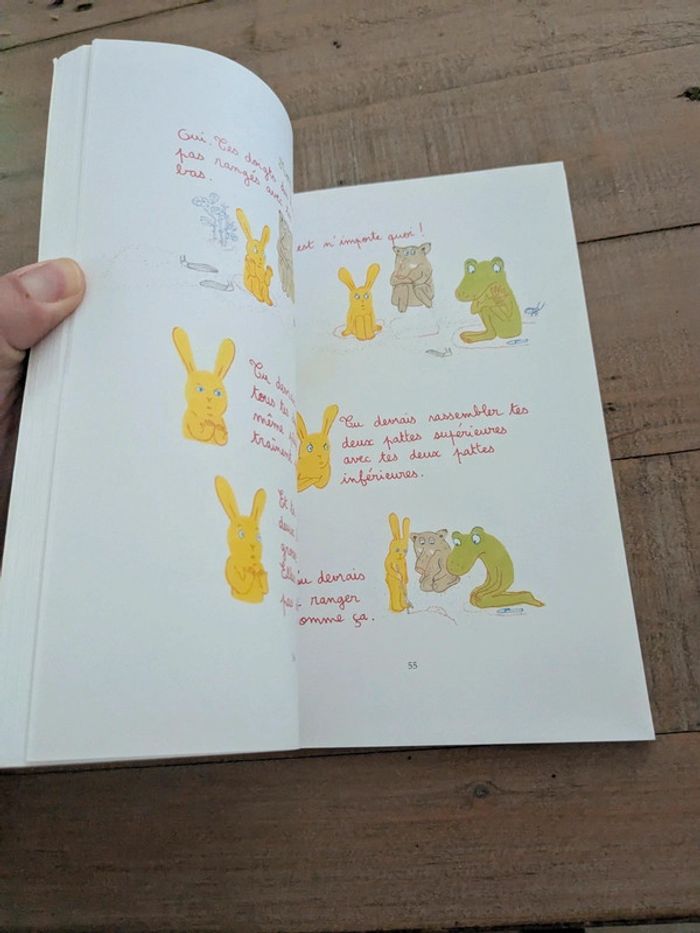 Oui. Tes doigts
pas rangés avec
bas.
Tu
tous tes
même
traînent
Et
Elles
pas
est n'importe quoi !
Tu devrais rassembler tes
deux pattes supérieures
avec tes deux pattes
inférieures.
devrais
ranger
omme ça.
55